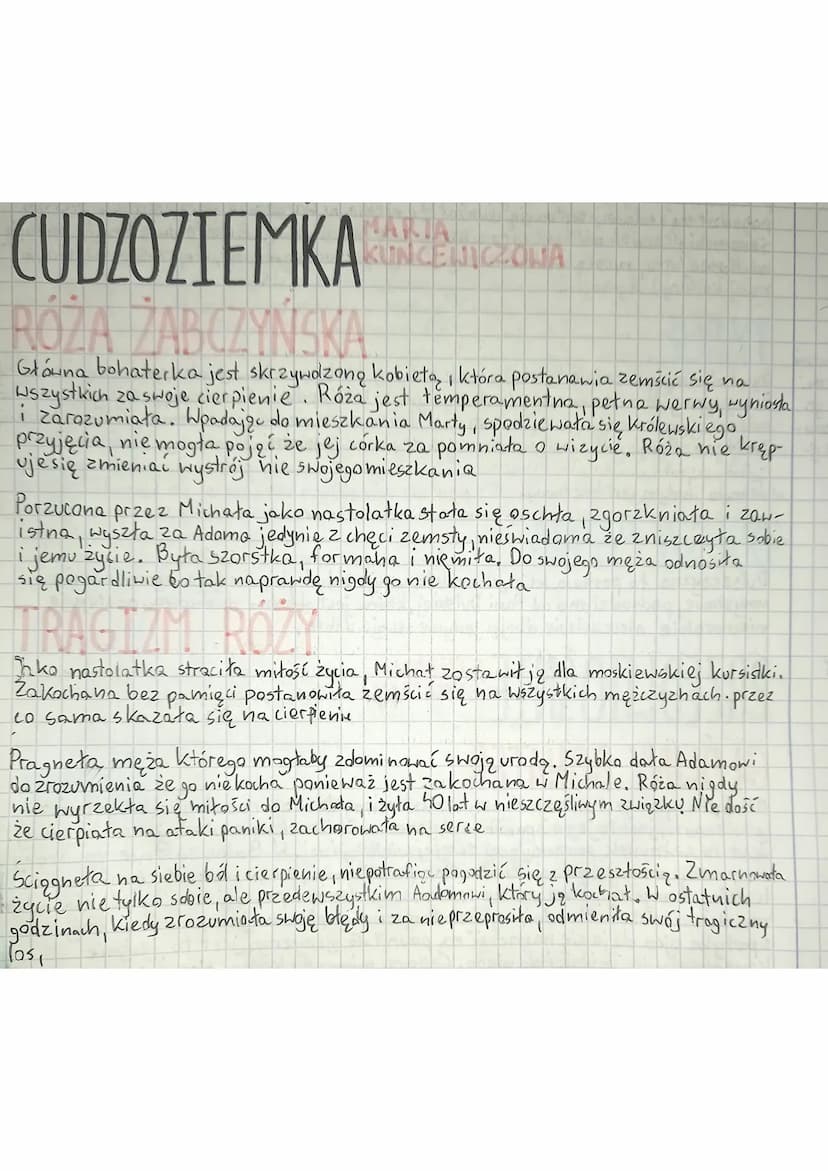 CUDZOZIEMKA MARIA
KUNCEWICZOWA
RÓŻA ŻABCZYŃSKA
Główna bohaterka jest skrzywdzoną kobietą, która postanawia zemścić się na
wszystkich za swoje cierpienie. Róża jest temperamentna, pełna werwy, wyniosła
i zarozumiała. Wpadając do mieszkania Marty, spodziewała się królewskiego
przyjęcia, nie mogła pojąć że jej córka za pomniała o wizycie. Róża nie kręp-
uje się zmieniać wystrój nie swojego mieszkania
Porzucona przez Michała jako nastolatka stała się oschła, zgorzkniała i zaw-
istna, wyszła za Adama jedynie z chęci zemsty, nieświadoma że zniszczyła sobie
i jemu życie. Była szorstka, formalna i niemiła. Do swojego męża odnosiła
się pogardliwie bo tak naprawdę nigdy go nie kochała
TRAGIZM RÓŻY
Jako nastolatka straciła miłość życia, Michał zostawił ją dla moskiewskiej kursistki.
Zakochana bez pamięci postanowiła zemścić się na wszystkich mężczyznach. przez
co sama skazała się na cierpienie
Pragnęła męża którego mogłaby zdominować swoją urodą. Szybko dała Adamowi
do zrozumienia że go nie kocha ponieważ jest zakochana w Michale. Róża nigdy
nie wyrzekła się miłości do Michała, i żyła 40 lat w nieszczęśliwym związku Nie dość
że cierpiała na ataki paniki, zachorowała na serce
Ściągnęła na siebie ból i cierpienie, nie potrafiąc pogodzić się z przeszłością. Zmarnowała
życie nie tylko sobie, ale przedewszystkim Aadomowi, który ją kochał. W ostatnich
godzinach, kiedy zrozumiała swoję błędy i za nie przeprosiła, odmieniła swój tragiczny
los,